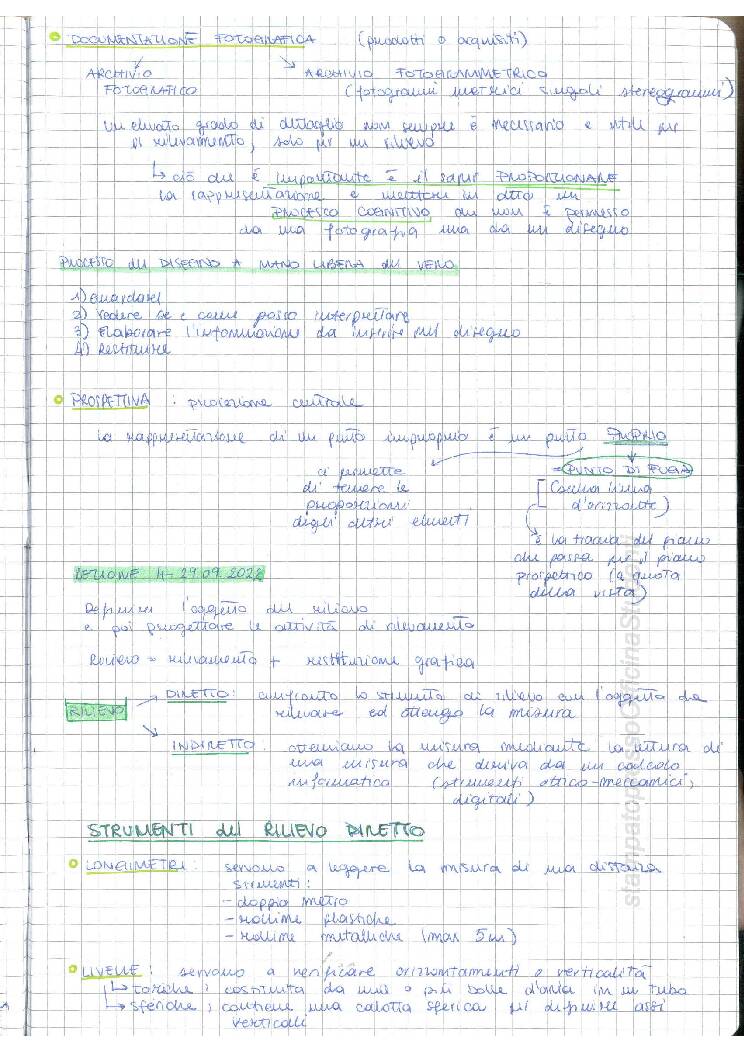 DOCUMENTAZIONE FOTOGRAFICA (prodotti o acquisiti)
ARCHIVIO FOTOGRAFICO
ARCHIVIO FOTOGRAMMETRICO
(fotogrammi metrici singoli stereogrammi)
Un elevato grado di dettaglio non sempre è necessario e utile per
il rilevamento, solo per un rilievo
↳ ciò che è importante è il saper PROPORZIONARE
la rappresentazione e mettere in atto un
PROCESSO COGNITIVO che non è permesso
da una fotografia ma da un disegno
PROCESSO del DISEGNO A MANO LIBERA dal VERO
1) Guardare
2) Vedere se e come posso interpretare
3) Elaborare l'informazione da inserire nel disegno
4) Restituire
PROSPETTIVA : proiezione centrale
la rappresentazione di un punto improprio è un punto PROPRIO
ci permette
di tenere le
proporzioni
degli altri elementi
= PUNTO DI FUGA
(sulla linea
d'orizzonte)
è la traccia del piano
che passa per il piano
prospettico (a quota
della vista)
LEZIONE 4 - 29.09.2022
Definire l'oggetto del rilievo
e poi progettare le attività di rilevamento
Rilievo = rilevamento + restituzione grafica
RILIEVO
DIRETTO: confronto lo strumento di rilievo con l'oggetto da
rilevare ed ottengo la misura
INDIRETTO: otteniamo la misura mediante la lettura di
una misura che deriva da un calcolo
informatico (strumenti ottico-meccanici,
digitali)
STRUMENTI del RILIEVO DIRETTO
LONGIMETRI: servono a leggere la misura di una distanza
strumenti:
- doppio metro
- rolline plastiche
- rolline metalliche (max 5m)
LIVELLE: servono a verificare orizzontamenti o verticalità
↳ toriche; costituita da una o più bolle d'aria in un tubo
↳ sferiche; contiene una calotta sferica per definire assi
verticali
stampatopressoOfficinaStudenti